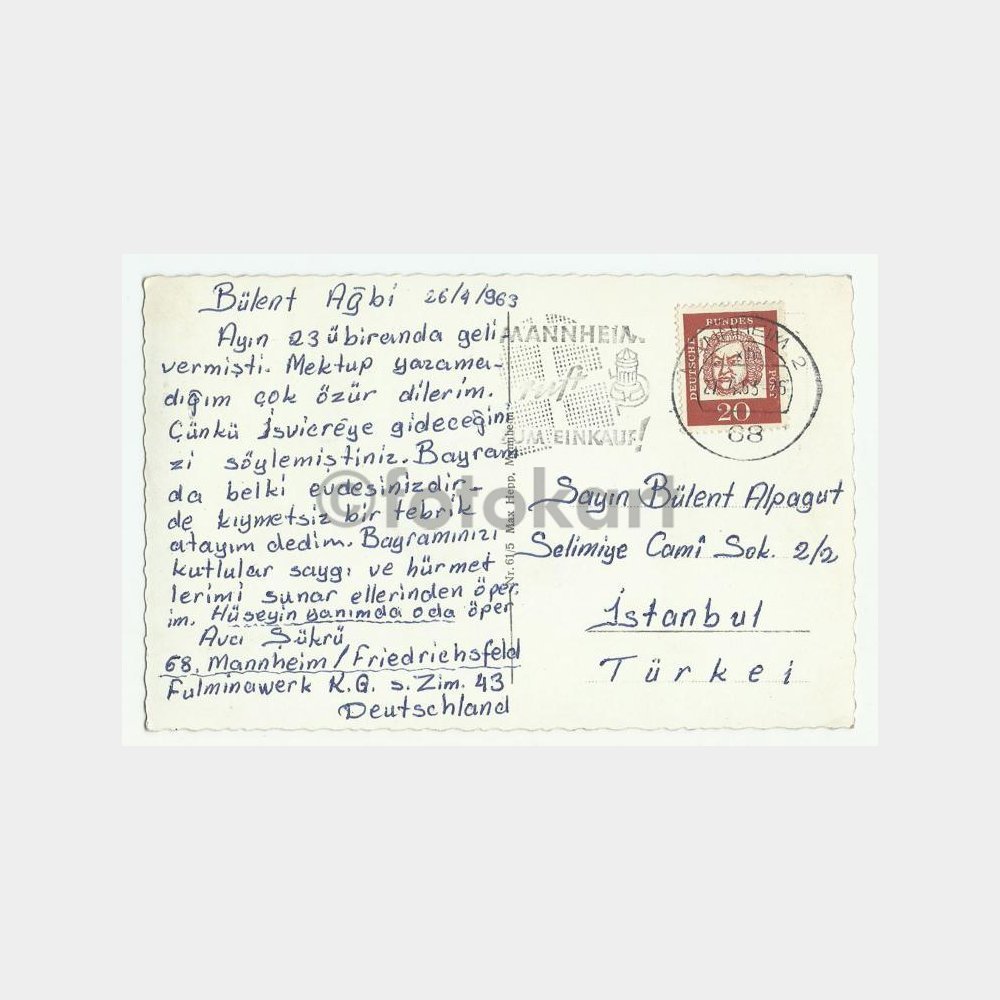 Bülent Ağbi 26/4/963
Ayın 23 ü biranda geli
vermişti. Mektup yazama-
dığım çok özür dilerim.
Çünkü İsvicreye gideceğini
zi söylemiştiniz. Bayram
da belki evdesinizdir-
de kıymetsiz bir tebrik
atayım dedim. Bayramınızı
kutlular saygı ve hürmet
lerimi sunar ellerinden öper.
im. Hüseyin yanımda oda öper
Avcı Şükrü
68. Mannheim/Friedrichsfeld
Fulminawerk K.G. s. Zim. 43
Deutschland
Nr. 61/5 Max Hepp, Mannheim
MANNHEIM
ruft
ZUM EINKAUF!
DEUTSCHE BUNDESPOST
20
MANNHEIM 2
68
Sayın Bülent Alpagut
Selimiye Camî Sok. 2/2
İstanbul
Türkei
©fotokart